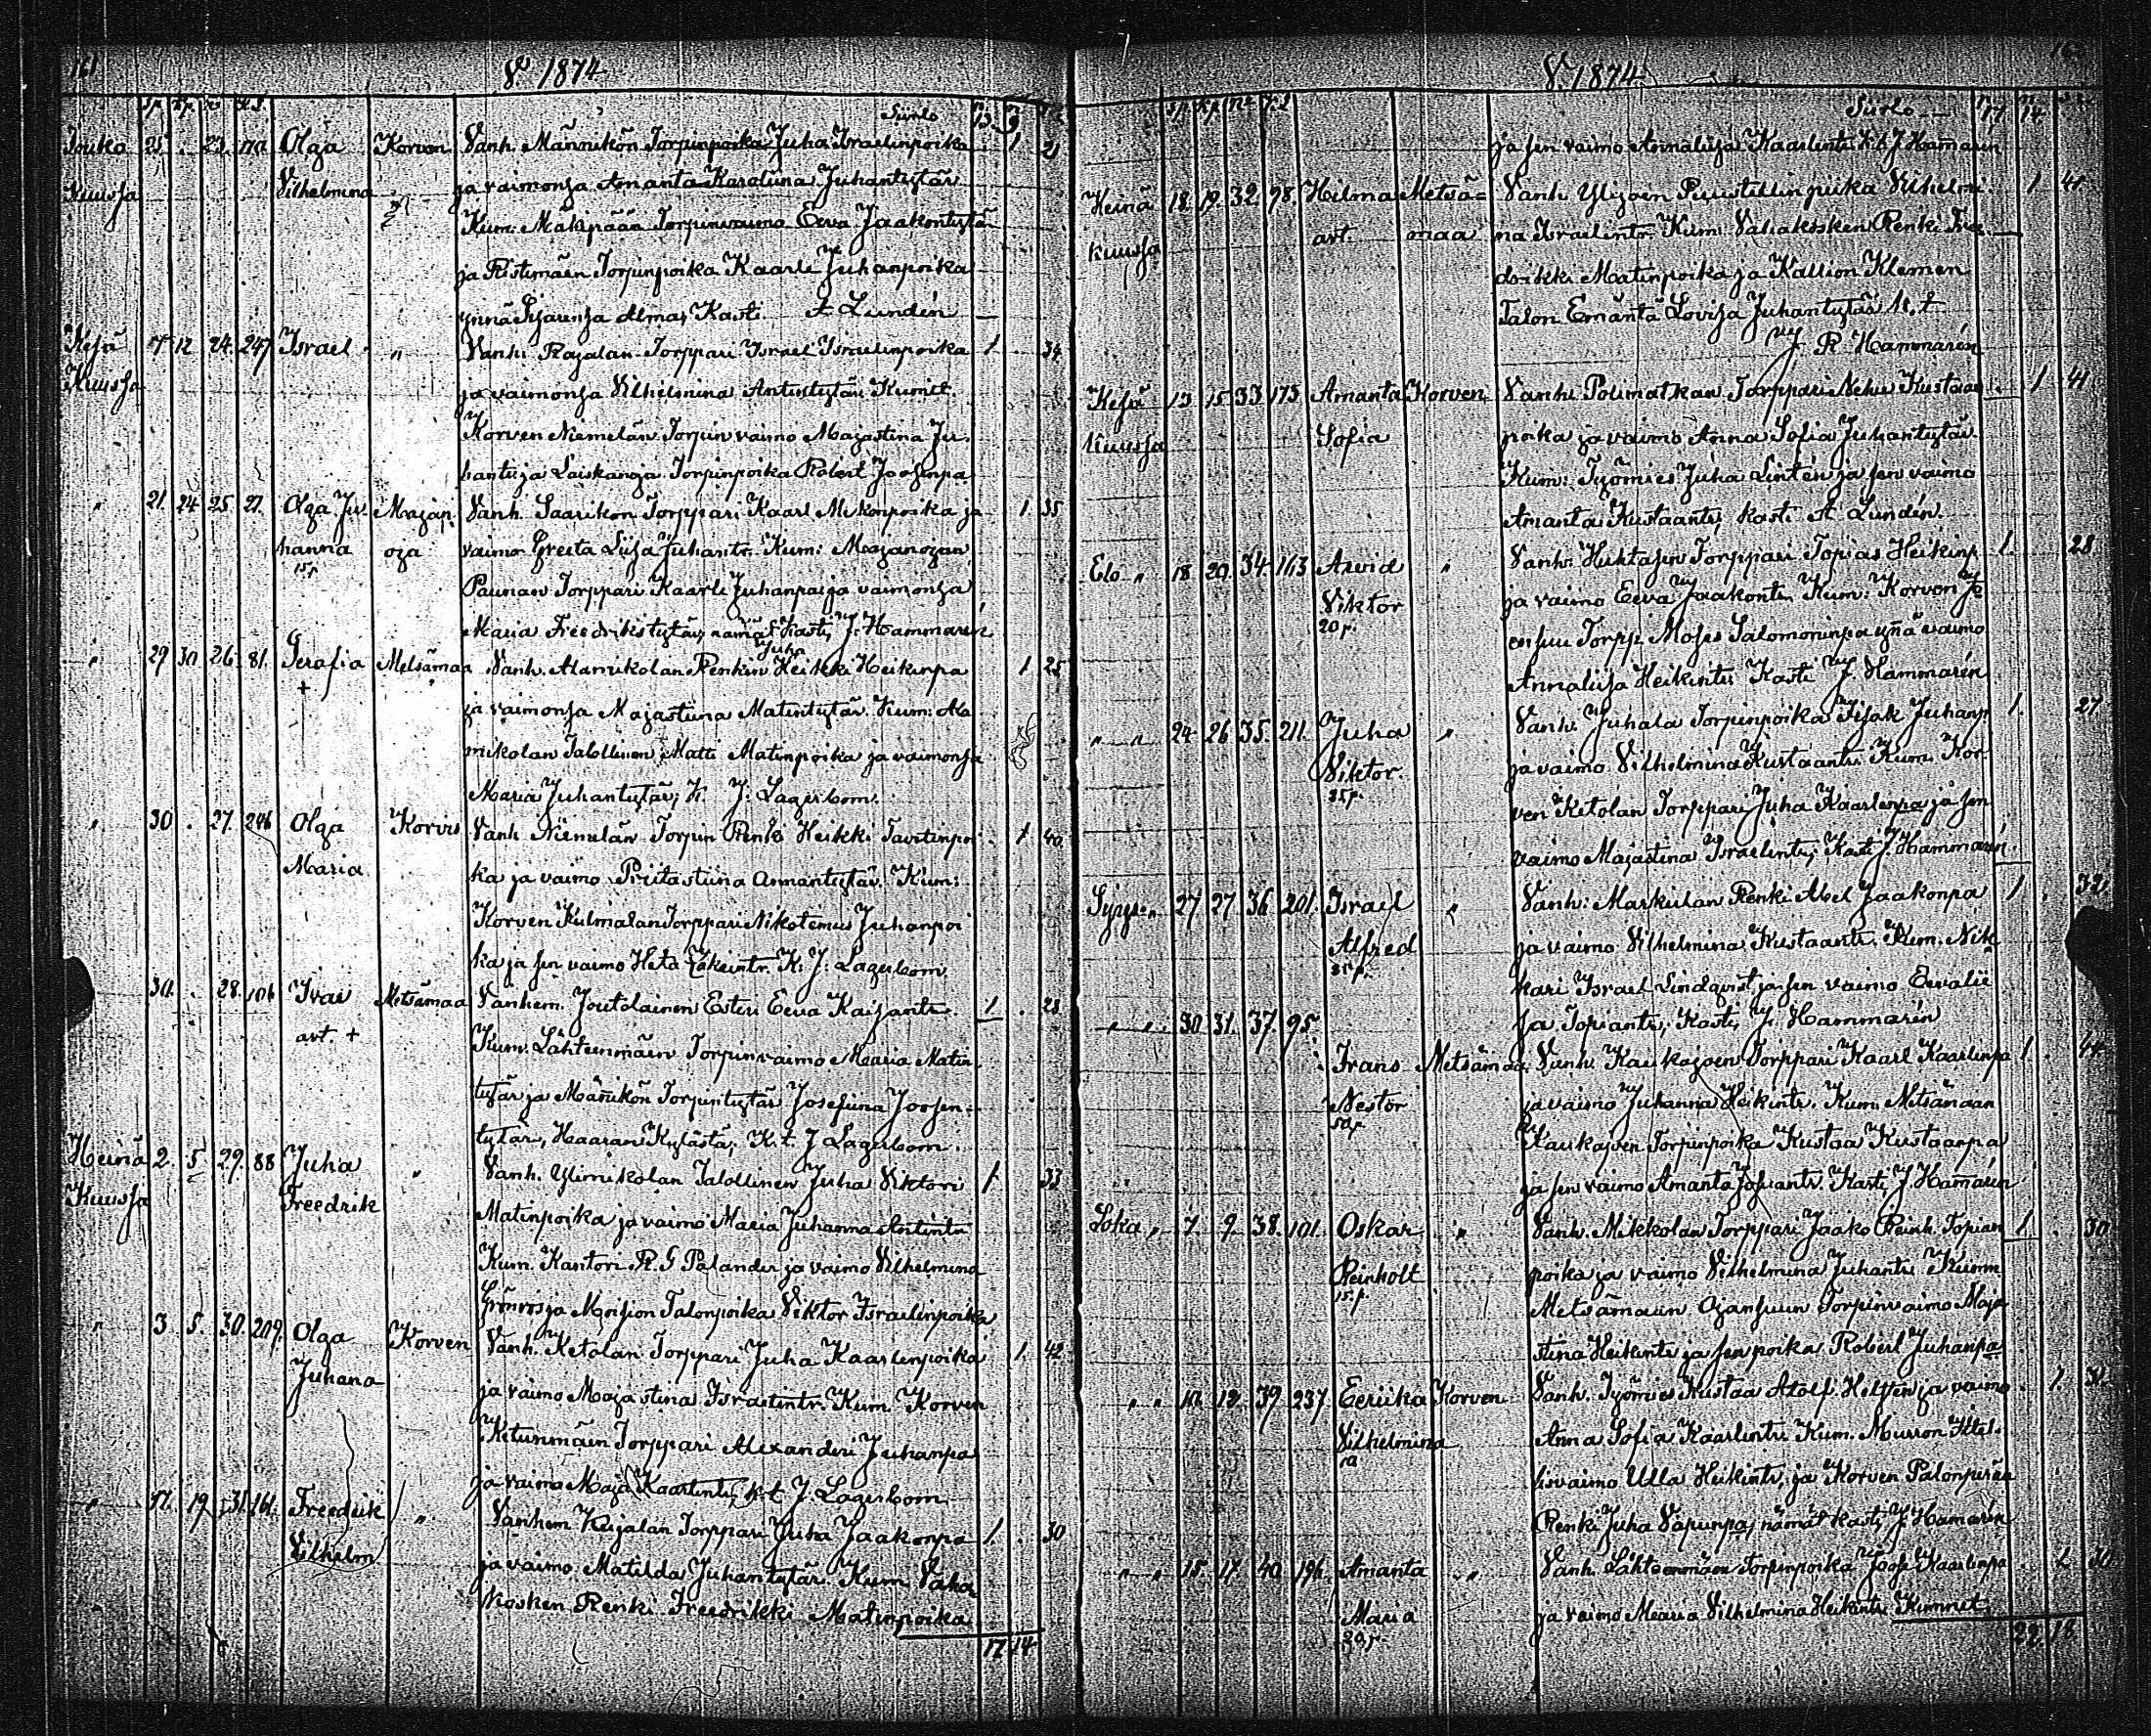 161
V 1874
sp. kp. no k.s. Siirto 13 9
Touko 25 . 23. Olga Korven Vanh. Männikön Torpinpoika Juha Israelinpoika . 1 21
Kuussa Vilhelmina ja vaimonsa Amanta Karoliina Juhantytär
Kum. Mäkipään Torpinvaimo Eeva Jaakontytär
ja Ristimäen Torpinpoika Kaarle Juhanpoika
ynnä Alma, Kasti A Lundén
Kesä 7 12 24. 247 Israel " Vanh. Rajalan Torppari Israel Israelinpoika 1 . 34
Kuussa ja vaimonsa Vilhelmina Antintytär Kumit.
Korven Niemelän Torpin vaimo Majastina Ju
hantr ja Laiskanoja Torpinpoika Robert Joosenpa
" 21. 24 25 21. Olga Jo Majan Vanh. Saarikon Torppari Kaarl Mikonpoika ja . 1 35
hanna oja vaimo Greeta Liisa Juhantr. Kum: Majanojan
15 p. Paunan Torppari Kaarle Juhanpa ja vaimonsa
Maria Freedrikstytär, nämät Kasti, J. Hammarén
" 29 30 26. 81. Serafia Metsämaa Vanh. Alamikolan Renkin Juha Heikki Heikinpa 1 25
+ ja vaimonsa Majastiina Matintytär. Kum: Ala
mikolan Talollinen Matti Matinpoika ja vaimonsa
Maria Juhantytär, K. J. Lagerbom.
" 30 . 27. 246 Olga Korvis Vanh. Niemelän Torpin Renki Heikki Tavetinpoi . 1 40.
Maria ka ja vaimo Priitastiina Annantytär. Kum:
Korven Kulmalan Torppari Nikotemus Juhanpoi
ka ja sen vaimo Heta Eskelintr. K. J. Lagerbom
30. . 28. 106 Ivar Metsämaa Vanhem. Joutolainen Esteri Eeva Kaisantr. 1 . 23
avt. + Kum. Lähteenmäen Torpinvaimo Maria Matin
tytär ja Männikön Torpintytär Josefiina Joosen=
tytär, Haaran Kylästä, K. t. J Lagerbom.
Heinä 2. 5 29. 88 Juha " Vanh. Ylimikolan Talollinen Juha Viktori 1 33
Kuussa Freedrik Matinpoika ja vaimo Maria Juhanna Antintr
Kum. Kantori R. G Palander ja vaimo Vilhelmina
Grönros ja Moision Talonpoika Viktor Israelinpoika
" 3. 5. 30. 209. Olga Korven Vanh. Ketolan Torppari Juha Kaarlenpoika . 1. 42
Juhana ja vaimo Majastina Israelintr. Kum. Korven
Ketunmäen Torppari Alexanderi Juhanpa
ja vaimo Maja Kaarlentr, k.t J. Lagerbom
" 17. 19 31. 161. Freedrik " Vanhem Kujalan Torppari Juha Jaakonpa 1. . 30
Vilhelm ja vaimo Matilda Juhantytär. Kum Vaha
kosken Renki Freedrikki Matinpoika
17 14
V. 1874
sp. kp. no k.s Siirto 17 14
ja sen vaimo Annaliisa Kaarlentr K. t. J Hammarén
Heinä 18. 19. 32. 98. Hilma Metsä= Vanh. Yljoen Puustellin piika Vilhelmi . 1 41
kuussa avt. maa na Israelintr. Kum. Vahakosken Renki Fre
drikki Matinpoika ja Kallion Klemen
Talon Emäntä Lovisa Juhantytär k. t
J R Hammarén
Kesä 13 15 33 173 Amanta Korven Vanh. Polimatkan Torppari Kustaan . 1 41
kuussa Sofia poika ja vaimo Anna Sofia Juhantytär.
Kum: Työmies Juha Lintén ja sen vaimo
Amanta Kustaantr, kasti A Lundén
Elo " 18 20. 34. 163 Arvid " Vanh. Huhtasen Torppari Topias Heikinp 1. 28
Viktor ja vaimo Eeva Jaakontr. Kum: Korven Jo
20 p. ensuu Torpp. Moses Salomoninpa ynnä vaimo
Annaliisa Heikintr Kasti J. Hammarén
" " 24 26 35. 211. Juha " Vanh. Juhala Torpinpoika Iisak Juhanp 1. 27
Viktor. ja vaimo Vilhelmina Kustaantr. Kum. Kor
35 p. ven Ketolan Torppari Juha Kaarlenpa ja sen
vaimo Majastina Israelintr, Kasti J. Hammarén.
Syys " 27 27 36 201. Israel " Vanh: Markulan Renki Abel Jaakonpa 1 . 32
Alfred ja vaimo Vilhelmina Kustaantr. Kum. Nik
kari Israel Lindqvist ja sen vaimo Eevalii
sa Topiantr, Kasti J. Hammarén
" " 30 31. 37. 95 Frans Metsämaa Vanh. Kaukajoen Torppari Kaarl Kaarlenpa 1. . 44
Nestor ja vaimo Juhanna Heikintr. Kum. Metsämaan
50 p. Kaukajoen Torpinpoika Kustaa Kustaanpa
ja sen vaimo Amanta Josantr. Kasti, J. Hamarén
Loka " 7. 9. 38. 101. Oskar " Vanh. Mikkolan Torppari Jaako Reinh. Topian 1 . 30
Reinholt poika ja vaimo Vilhelmina Juhantr. Kumm.
15. p. Metsämaan Ojansuun Torpinvaimo Maja
stina Heikintr ja sen poika Robert Juhanpa
" " 10. 12. 39 237 Eeriika Korven Vanh. Työmies Kustaa Atolf. Helsten ja vaimo . 1. 31
Vilhelmina Anna Sofia Kaarlentr. Kum. Murron Itsel
lisvaimo Ulla Heikintr, ja Korven Palonperän
Renki Juha Vapunpa, nämät kasti J. Hamarén
" " 15. 17. 40 196. Amanta " Vanh. Lähteenmäen Torpinpoika Joose Kaarlenpa . 1. 30
Maria ja vaimo Maria Vilhelmina Heikintr. Kummit
20 p. 22. 18.